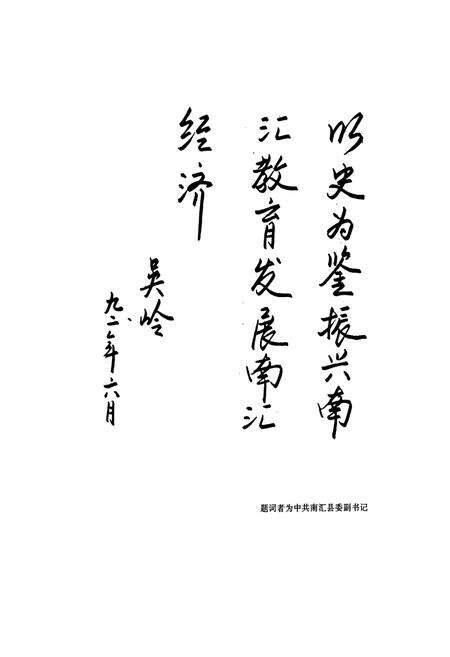 以史为鉴振兴南
汇教育发展南汇
经济
吴岭
九二年六月
题词者为中共南汇县委副书记